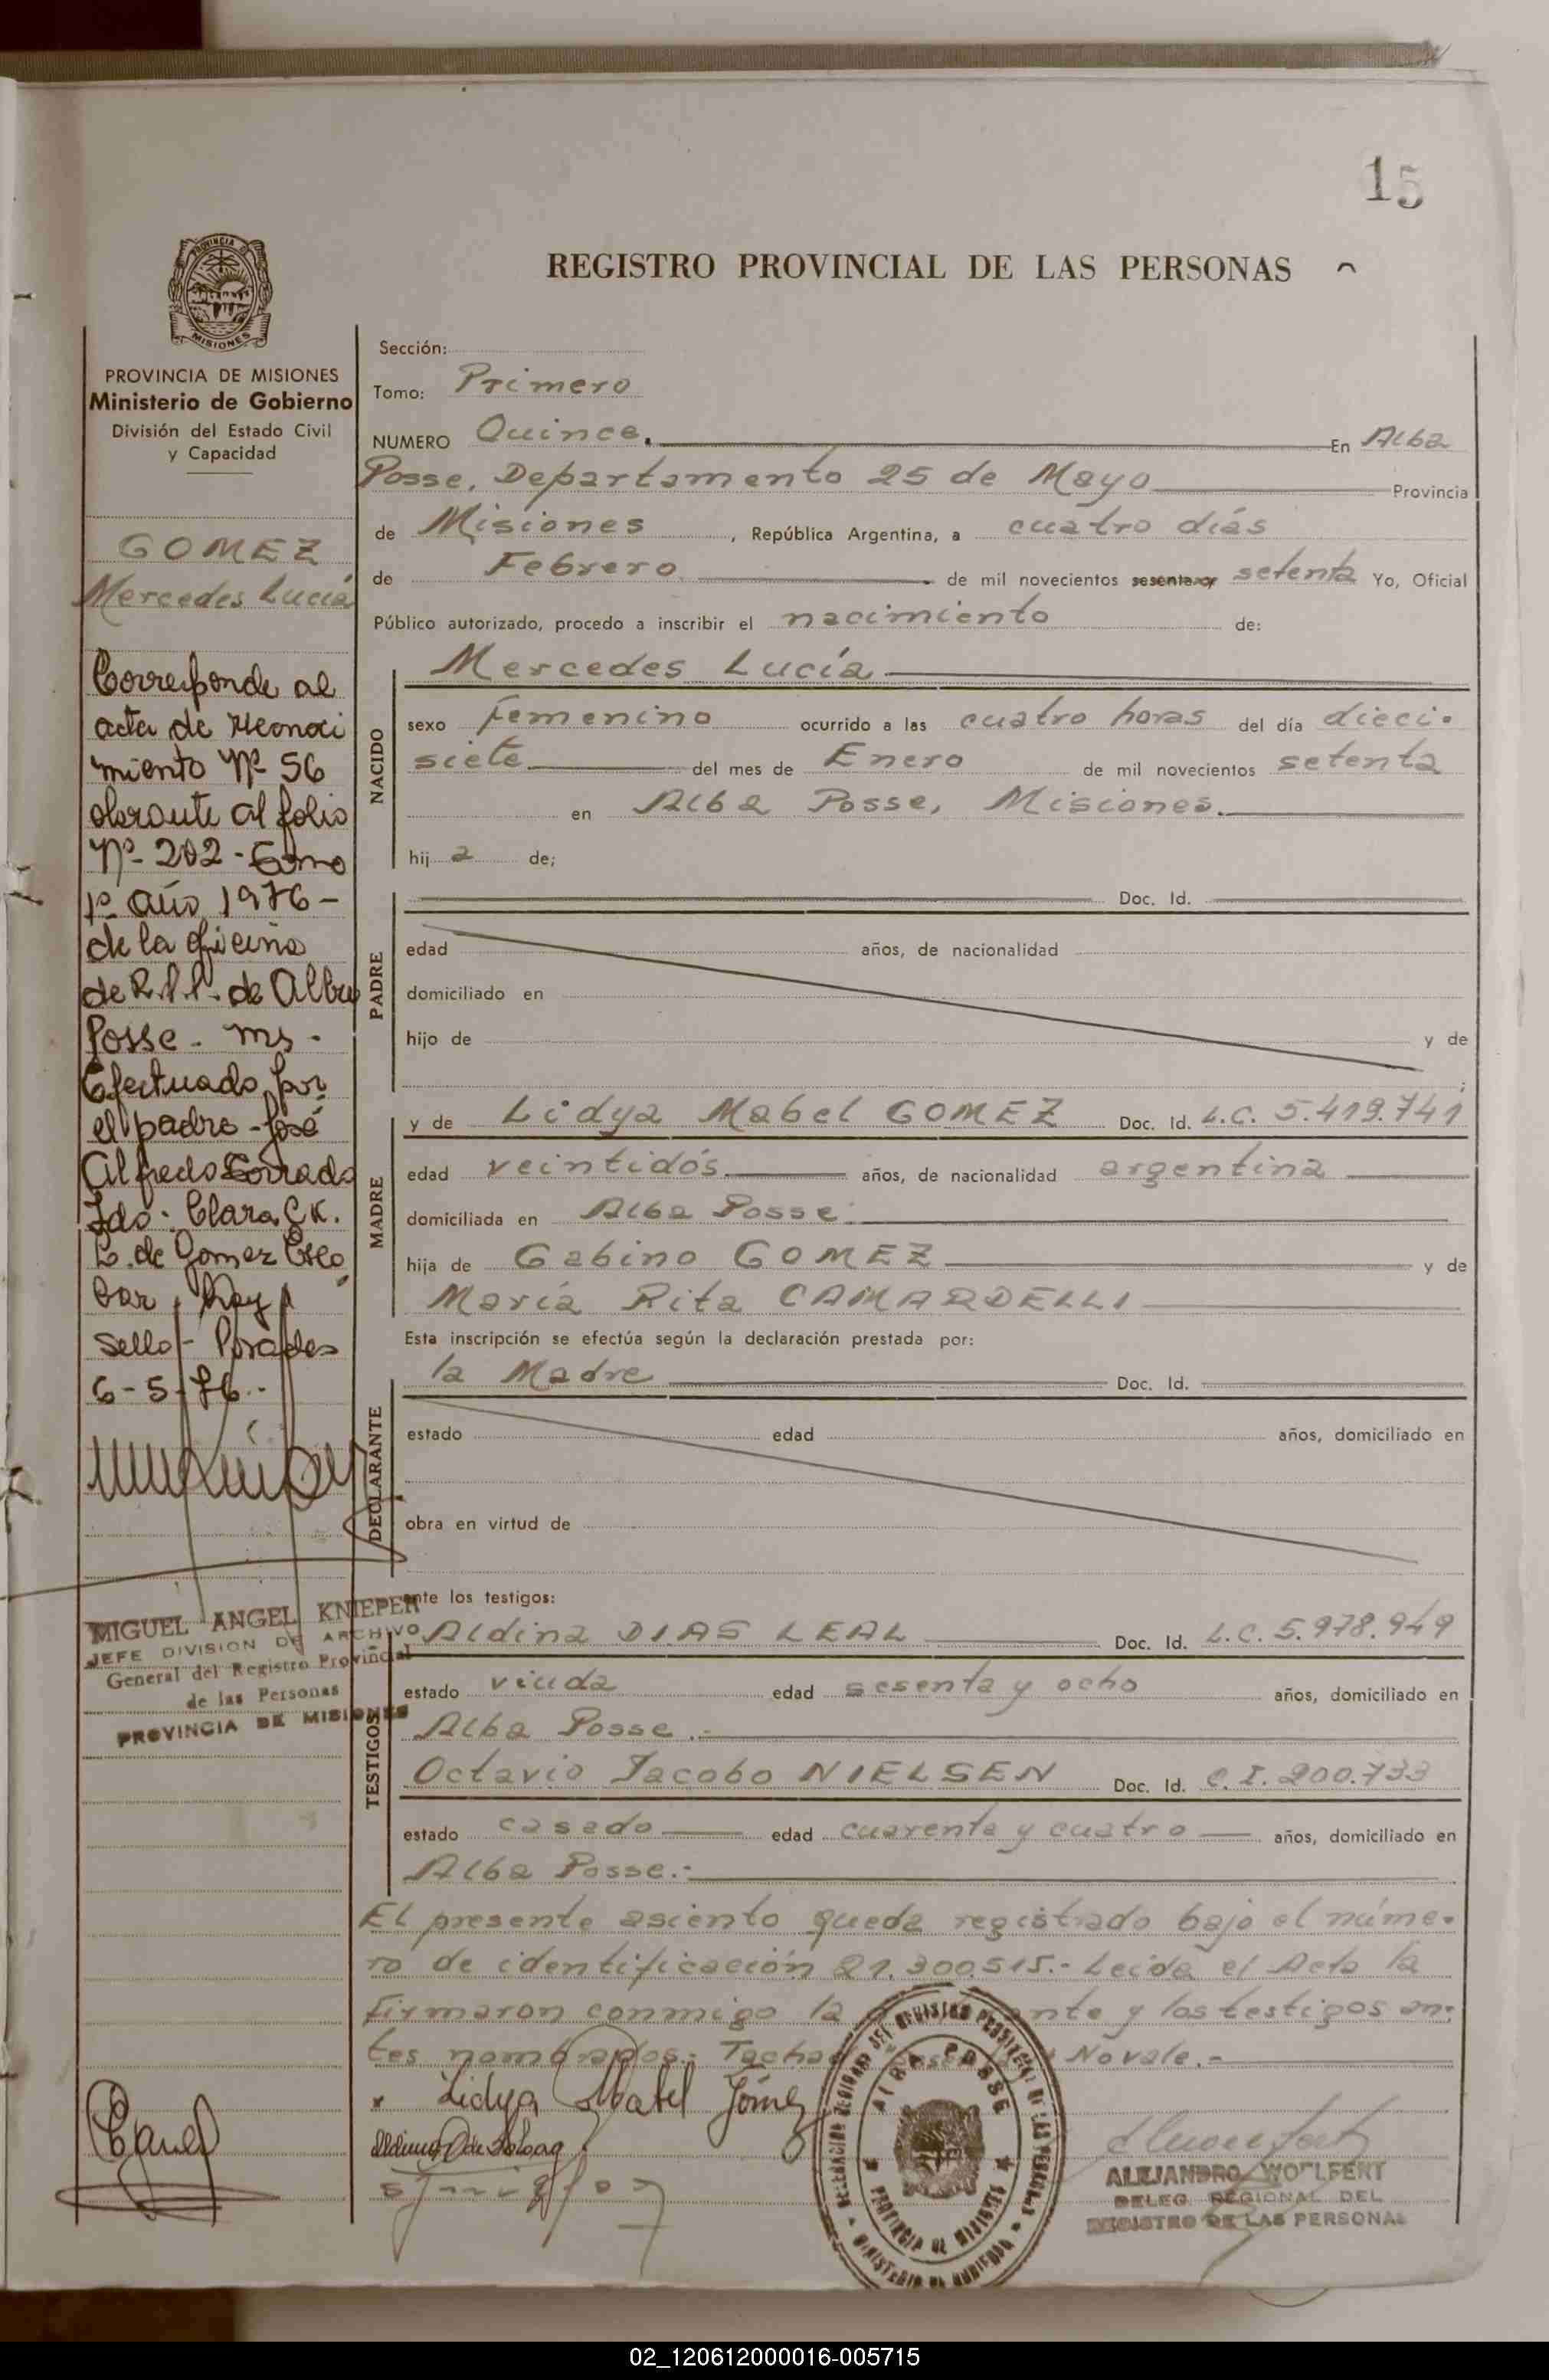 15
REGISTRO PROVINCIAL DE LAS PERSONAS
PROVINCIA DE MISIONES
Ministerio de Gobierno
División del Estado Civil
y Capacidad
GOMEZ
Mercedes Lucía
Corresponde al
acta de reconoci
miento Nº 56
obrante al folio
Nº 202 - Tomo
1º año 1976 -
de la oficina
de R.P.P. de Alba
Posse - Ms -
Efectuado por
el padre - José
Alfredo
Fdo: Clara CK.
de Gomez Esco
bar, hay
sello - Posadas
6-5-76.-
MIGUEL ANGEL KNIEPER
JEFE DIVISION DE ARCHIVO
General del Registro Provincial
de las Personas
PROVINCIA DE MISIONES
Sección:
Tomo: Primero
NUMERO Quince. En Alba
Posse, Departamento 25 de Mayo Provincia
de Misiones, República Argentina, a cuatro días
de Febrero de mil novecientos sesenta y setenta Yo, Oficial
Público autorizado, procedo a inscribir el nacimiento de:
NACIDO
Mercedes Lucía
sexo femenino ocurrido a las cuatro horas del día dieci-
siete del mes de Enero de mil novecientos setenta
en Alba Posse, Misiones.
hij a de;
PADRE
Doc. Id.
edad años, de nacionalidad
domiciliado en
hijo de y de
;
MADRE
y de Lidya Mabel GOMEZ Doc. Id. L.C. 5.419.741
edad veintidós años, de nacionalidad argentina
domiciliada en Alba Posse.
hija de Gabino GOMEZ y de
María Rita CAMARDELLI
Esta inscripción se efectúa según la declaración prestada por:
DECLARANTE
la Madre Doc. Id.
estado edad años, domiciliado en
obra en virtud de
ante los testigos:
TESTIGOS
Aldina DIAS LEAL Doc. Id. L.C. 5.978.949
estado viuda edad sesenta y ocho años, domiciliado en
Alba Posse.-
Octavio Jacobo NIELSEN Doc. Id. C.I. 200.733
estado casado edad cuarenta y cuatro años, domiciliado en
Alba Posse.-
El presente asiento queda registrado bajo el núme-
ro de identificación 21.300.515.- Leída el Acta la
firmaron conmigo la y los testigos an-
tes nombrados.- Novale.-
Lidya Mabel Gómez
ALBA POSSE
PROVINCIA DE MISIONES
ALEJANDRO WOLFERT
DELEG. REGIONAL DEL
REGISTRO DE LAS PERSONAS
02_120612000016-005715